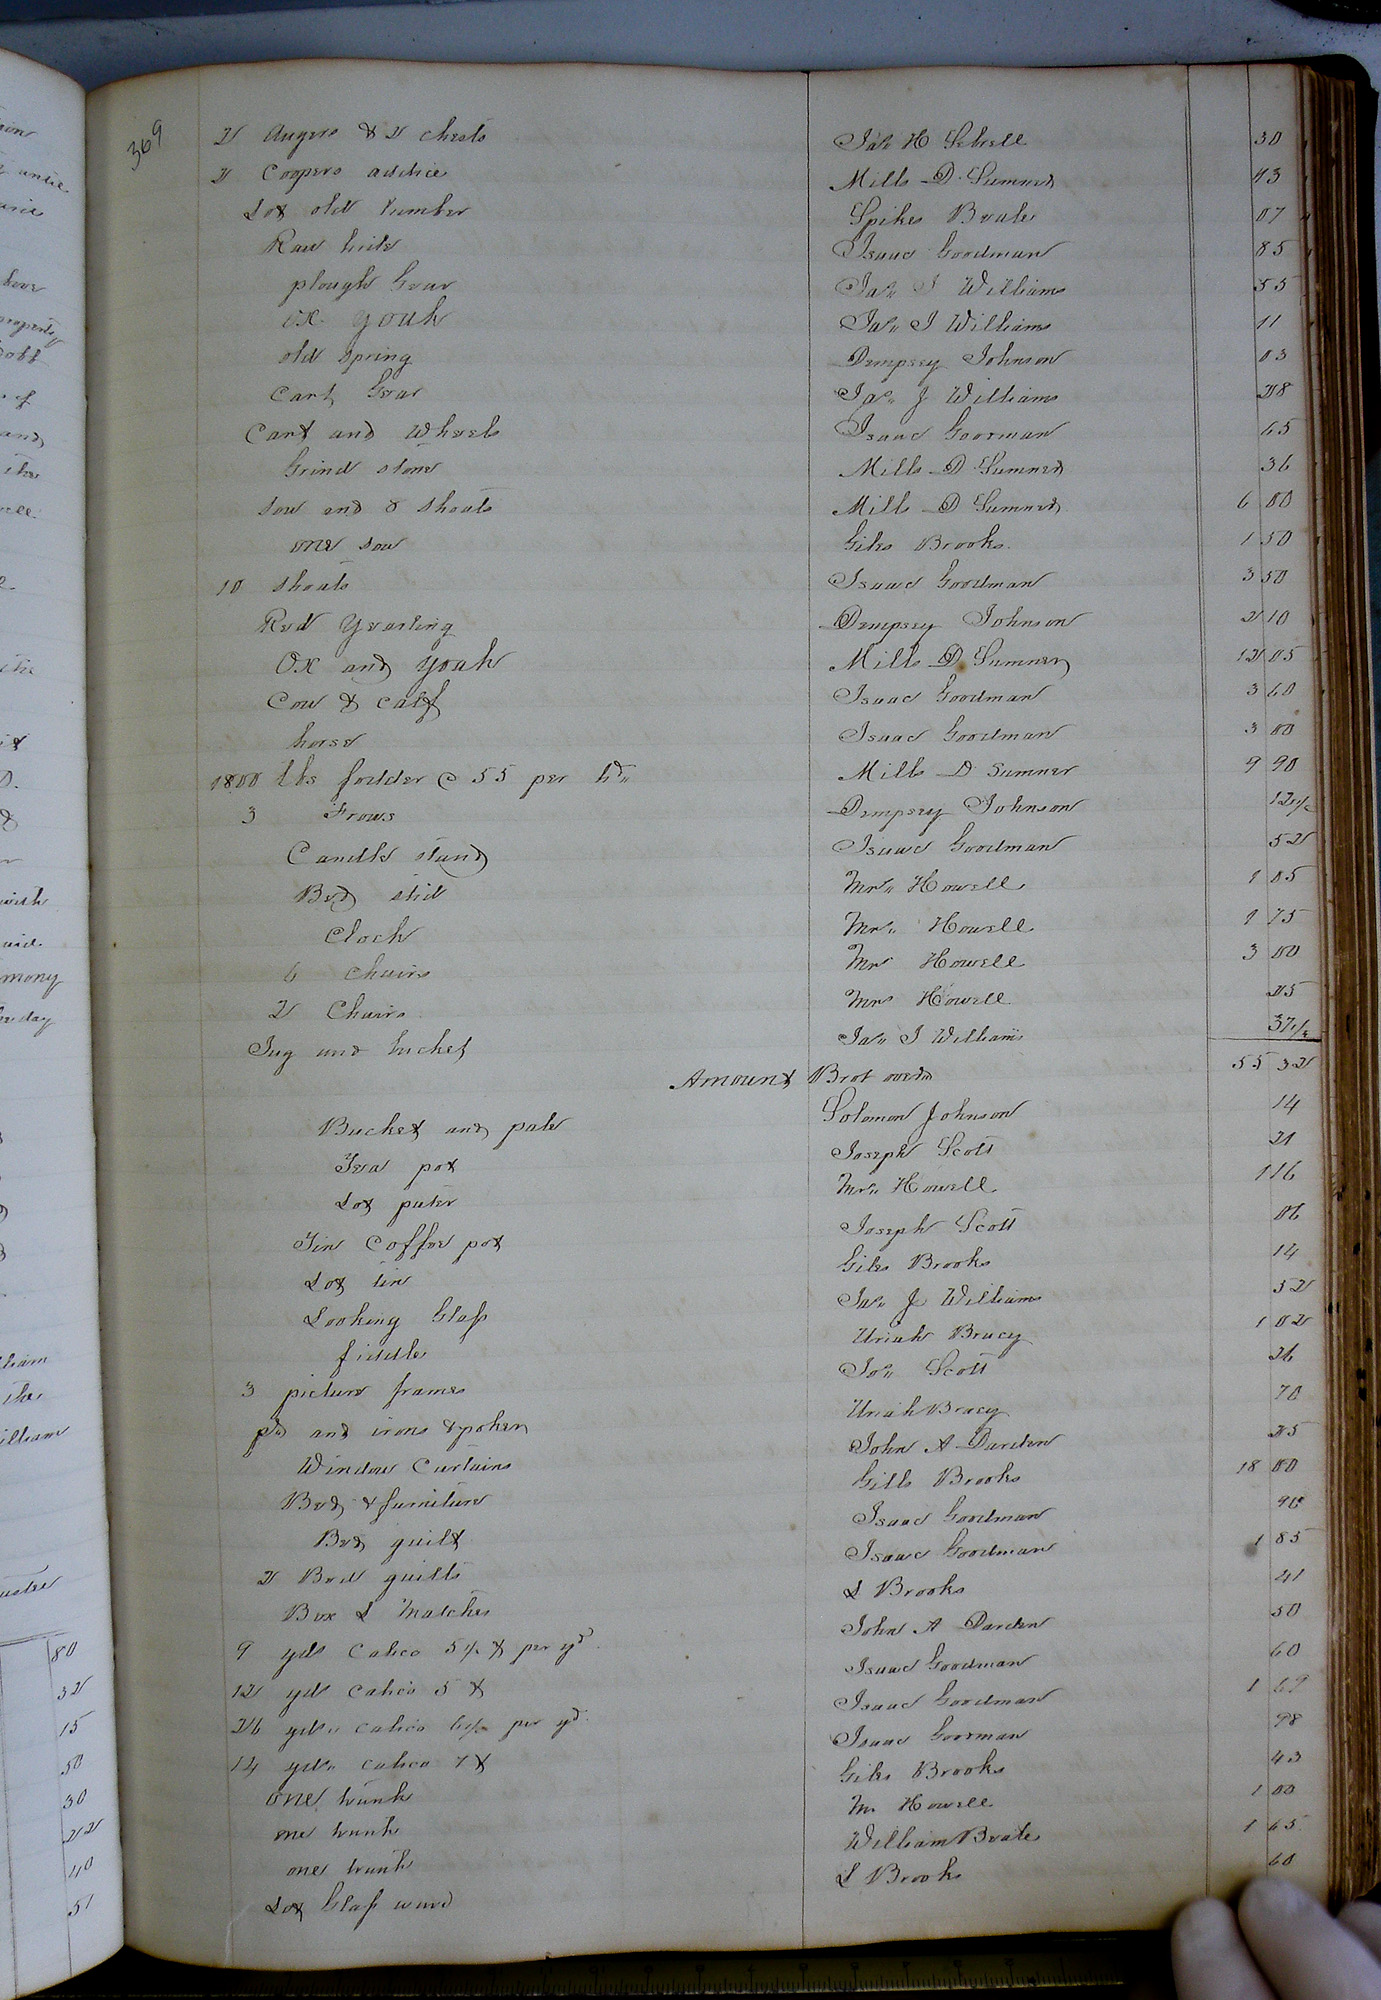 369
2 Augers & 2 chests Jas H Sebrell 30
2 Coopers addice Mills D Sumner 43
Lot old lumber Spikes Beale 07
Raw hide Isaac Goodman 85
plough Gear Jas J Williams 55
ox youk Jas J Williams 11
old spring Dempsey Johnson 03
Cart Gear Jas J Williams 28
Cart and Wheels Isaac Goodman 65
Grind stone Mills D Sumner 36
Sow and 8 shoats Mills D Sumner 6 00
one sow Giles Brooks 1 50
10 shoats Isaac Goodman 3 50
Red Yearling Dempsey Johnson 2 10
Ox and youk Mills D Sumner 12 05
Cow & calf Isaac Goodman 3 60
horse Isaac Goodman 3 00
1800 lbs fodder @ 55 per hd Mills D Sumner 9 90
3 Frows Dempsey Johnson 12 1/2
Candle stand Isaac Goodman 52
Bed stid Mrs Howell 1 05
Clock Mrs Howell 1 75
6 chairs Mrs Howell 3 00
2 Chairs Mrs Howell 25
Jug and bucket Jas J Williams 37 1/2
Amount Brot over 55 32
Bucket and pale Solomon Johnson 14
Tea pot Joseph Scott 21
Lot puter Mrs Howell 1 16
Tin Coffee pot Joseph Scott 06
Lot tin Giles Brooks 14
Looking Glass Jas J Williams 52
fiddle Uriah Bracy 1 02
3 picture frames Jos Scott 26
pr and irons & poker Uriah Bracy 70
Window Curtains John A Darden 25
Bed & furniture Gills Brooks 18 00
Bed quilt Isaac Goodman 90
2 Bed quilts Isaac Goodman 1 85
Box L Matches L Brooks 41
9 yds Calico 5 1/2 per yd John A Darden 50
12 yds Calico 5 Isaac Goodman 60
26 yds calico 6 1/2 per yd Isaac Goodman 1 69
14 yds calico 7 Isaac Goodman 98
one trunk Giles Brooks 43
one trunk M Howell 1 00
one trunk William Beale 1 65
Lot Glass ware L Brooks 60
80
32
15
50
30
22
40
51